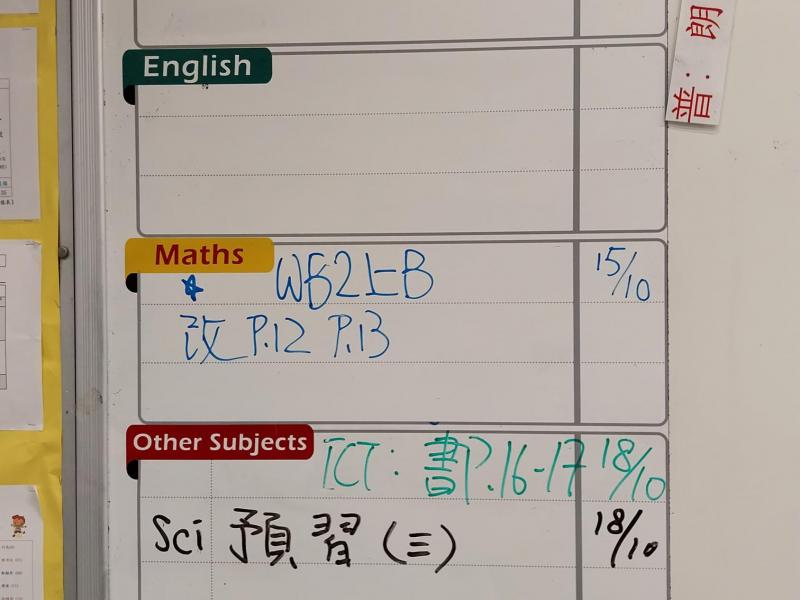 English
普：朗
Maths
WB2上B 15/10
改 P.12 P.13
Other Subjects
ICT：書P.16-17 18/10
Sci 預習(三) 18/10